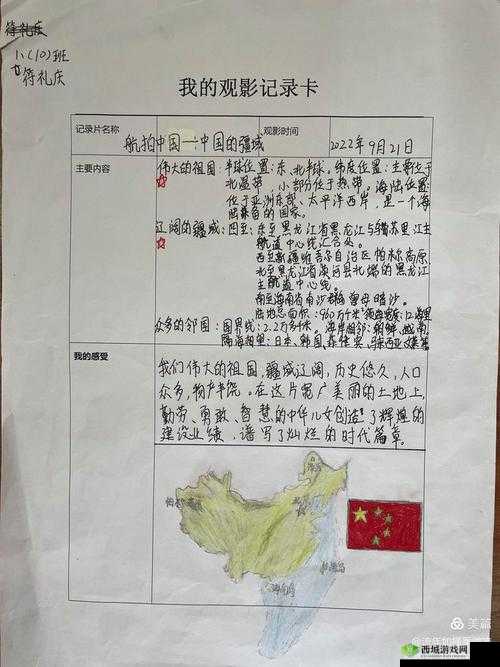 待礼庆
1、(10)班
待礼庆
我的观影记录卡
记录片名称
航拍中国—中国的疆域
观影时间
2022年9月21日
主要内容
伟大的祖国:半球位置:东、北半球。纬度位置:主要位于
北温带,小部分位于热带。海陆位置:
位于亚洲东部、太平洋西岸,是一个海
陆兼备的国家。
辽阔的疆域:四至:东至黑龙江省黑龙江与乌苏里江主
航道中心线汇合处。
西至新疆维吾尔自治区帕米尔高原,
北至黑龙江省漠河县北端的黑龙江
主航道中心线。
南至海南省南沙群岛曾母暗沙。
陆地总面积:960万千米
众多的邻国:国界线:2.2万多千米。海岸相邻:朝鲜、越南,
隔海相望:日本、韩国、菲律宾、
我的感受
我们伟大的祖国,疆域辽阔,历史悠久,人口
众多,物产丰饶。在这片宽广美丽的土地上,
勤劳、勇敢、智慧的中华儿女创造了辉煌的
建设业绩,谱写了灿烂的时代篇章。
美篇
西域游戏网